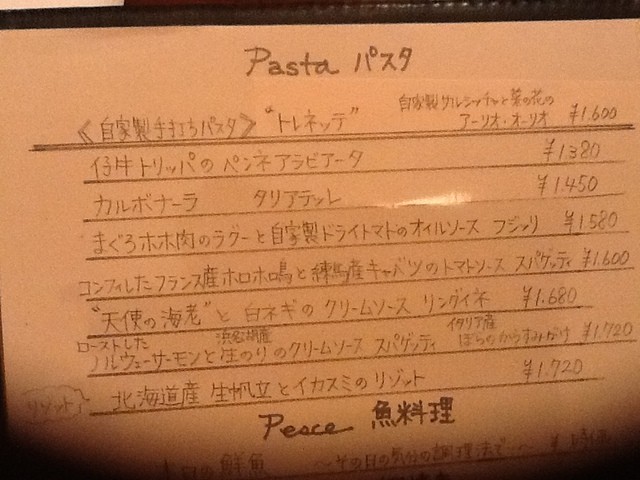 Pasta パスタ
《自家製手打ちパスタ》 "トレネッテ" 自家製サルシッチャと菜の花の アーリオ・オーリオ ¥1.600
仔牛トリッパの ペンネアラビアータ ¥1380
カルボナーラ タリアテッレ ¥1.450
まぐろホホ肉のラグーと自家製ドライトマトのオイルソース フジッリ ¥1580
コンフィしたフランス産ホロホロ鳥と練馬産キャベツのトマトソース スパゲッティ ¥1.600
"天使の海老"と 白ネギの クリームソース リングイネ ¥1.680
ローストした 浜名湖産 イタリア産
ノルウェーサーモンと生のりのクリームソース スパゲッティ ぼらのからすみがけ ¥1.720
リゾット 北海道産 生帆立とイカスミのリゾット ¥1.720
Pesce 魚料理
本日の鮮魚 〜その日の気分の調理法で…〜 ¥ 時価